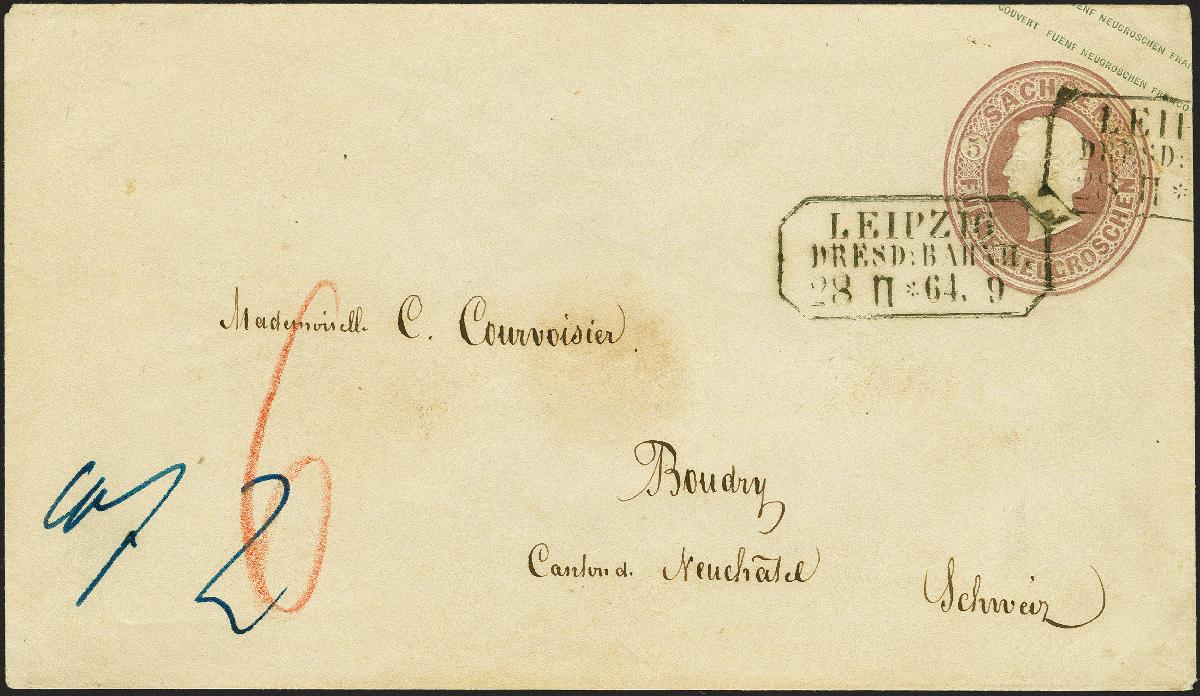 FUENF NEUGROSCHEN
COUVERT FUENF NEUGROSCHEN FRANCO
SACHSEN
5 5
FÜNF NEUGROSCHEN
LEIP
DRESD:
28 II *
LEIPZIG
DRESD:BAHNH
28 II * 64. 9
Mademoiselle C. Courvoisier
6
2
Boudry
Canton d. Neuchâtel
Schweiz